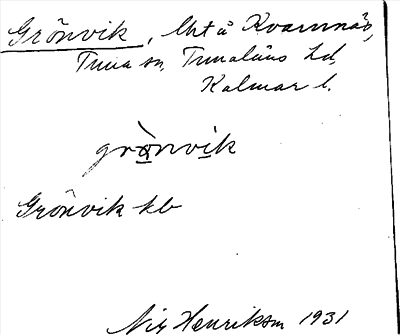 Grönvik, lht å Kvarnnäs,
Tuna sn, Tunaläns hd,
Kalmar l.
grò̱nvi̱k
Grönvik kb
Nix Henrikson 1931